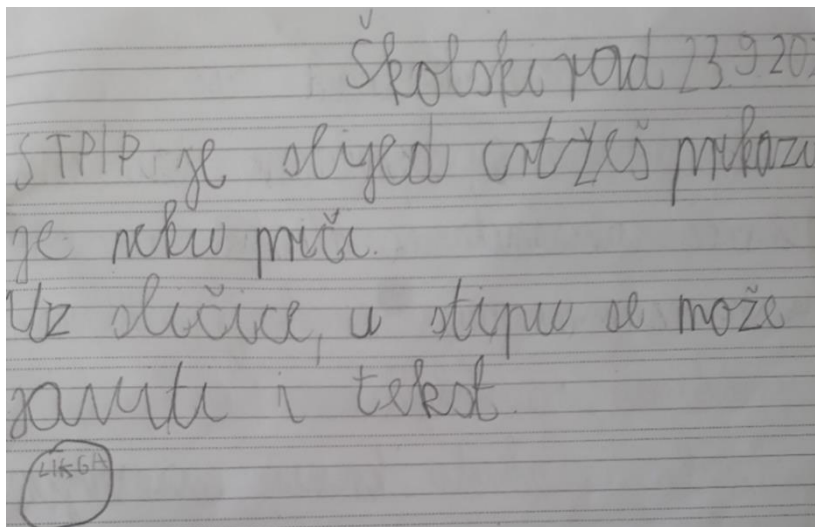 Školski rad 23.9.202
STPIP je slijed crtžeš prikazu
je neku priču.
Uz sličice, u stipu se može
javiti i tekst.